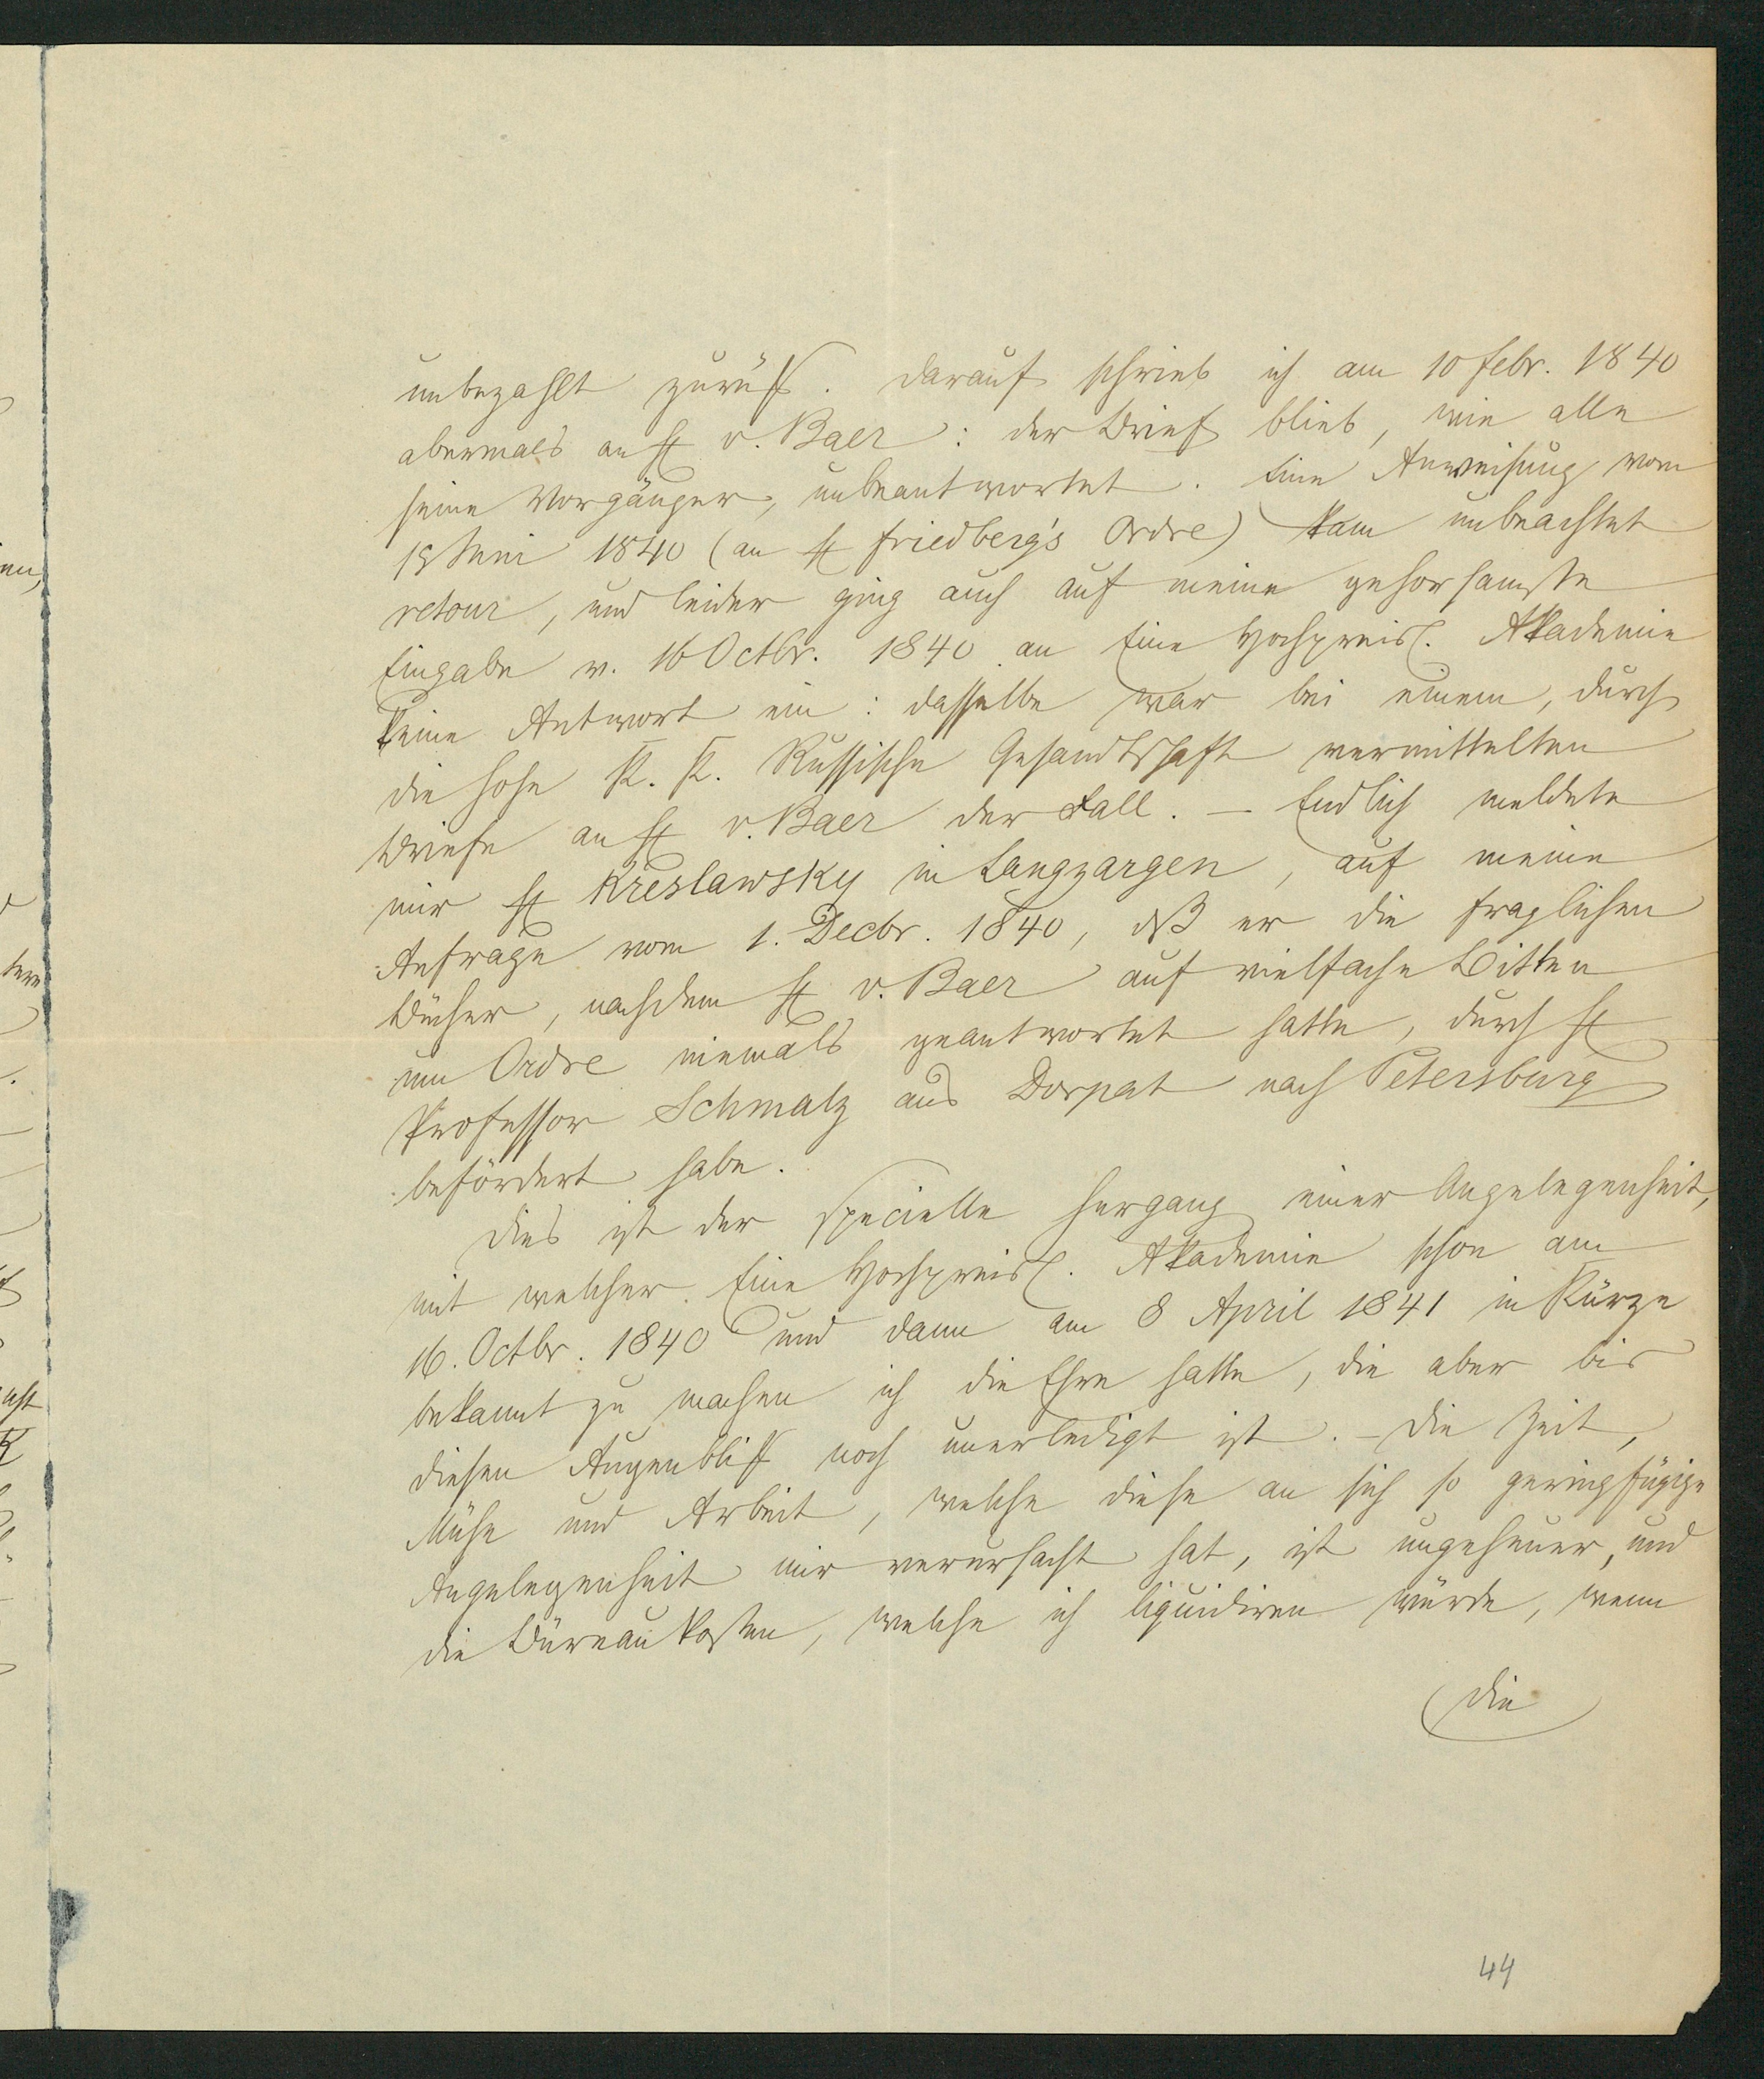 unbezahlt zurück. Darauf schrieb ich am 10 Febr. 1840
abermals an H. v. Baer: der Brief blieb, wie alle
seine Vorgänger, unbeantwortet. Eine Anweisung vom
Juni 1840 (an H. Friedberg's Ordre) kam unbeachtet
retour, und leider ging auch auf meine gehorsamste
Eingabe v. 16 Octbr. 1840 an Eine Hochpreisl. Akademie
keine Antwort ein: dasselbe war bei einem, durch
die hohe K. K. Russische Gesandtschaft vermittelten
Briefe an H. v. Baer der Fall. – Endlich meldete
mir H. Kreslawsky in Langzargen, auf meine
Anfrage vom 1. Decbr. 1840, dß er die fraglichen
Bücher, nachdem H. v. Baer auf vielfache Bitten
um Ordre niemals geantwortet hatte, durch H.
Professor Schmalz aus Dorpat nach Petersburg
befördert habe.
Dies ist der specielle Hergang einer Angelegenheit,
mit welcher Eine Hochpreisl. Akademie schon am
16. Octbr. 1840 und dann am 8 April 1841 in Kürze
bekannt zu machen ich die Ehre hatte, die aber bis
diesen Augenblick noch unerledigt ist. – Die Zeit,
Mühe und Arbeit, welche diese an sich so geringfügige
Angelegenheit mir verursacht hat, ist ungeheuer, und
die Büreaukosten, welche ich liquidiren würde, wenn
die
44